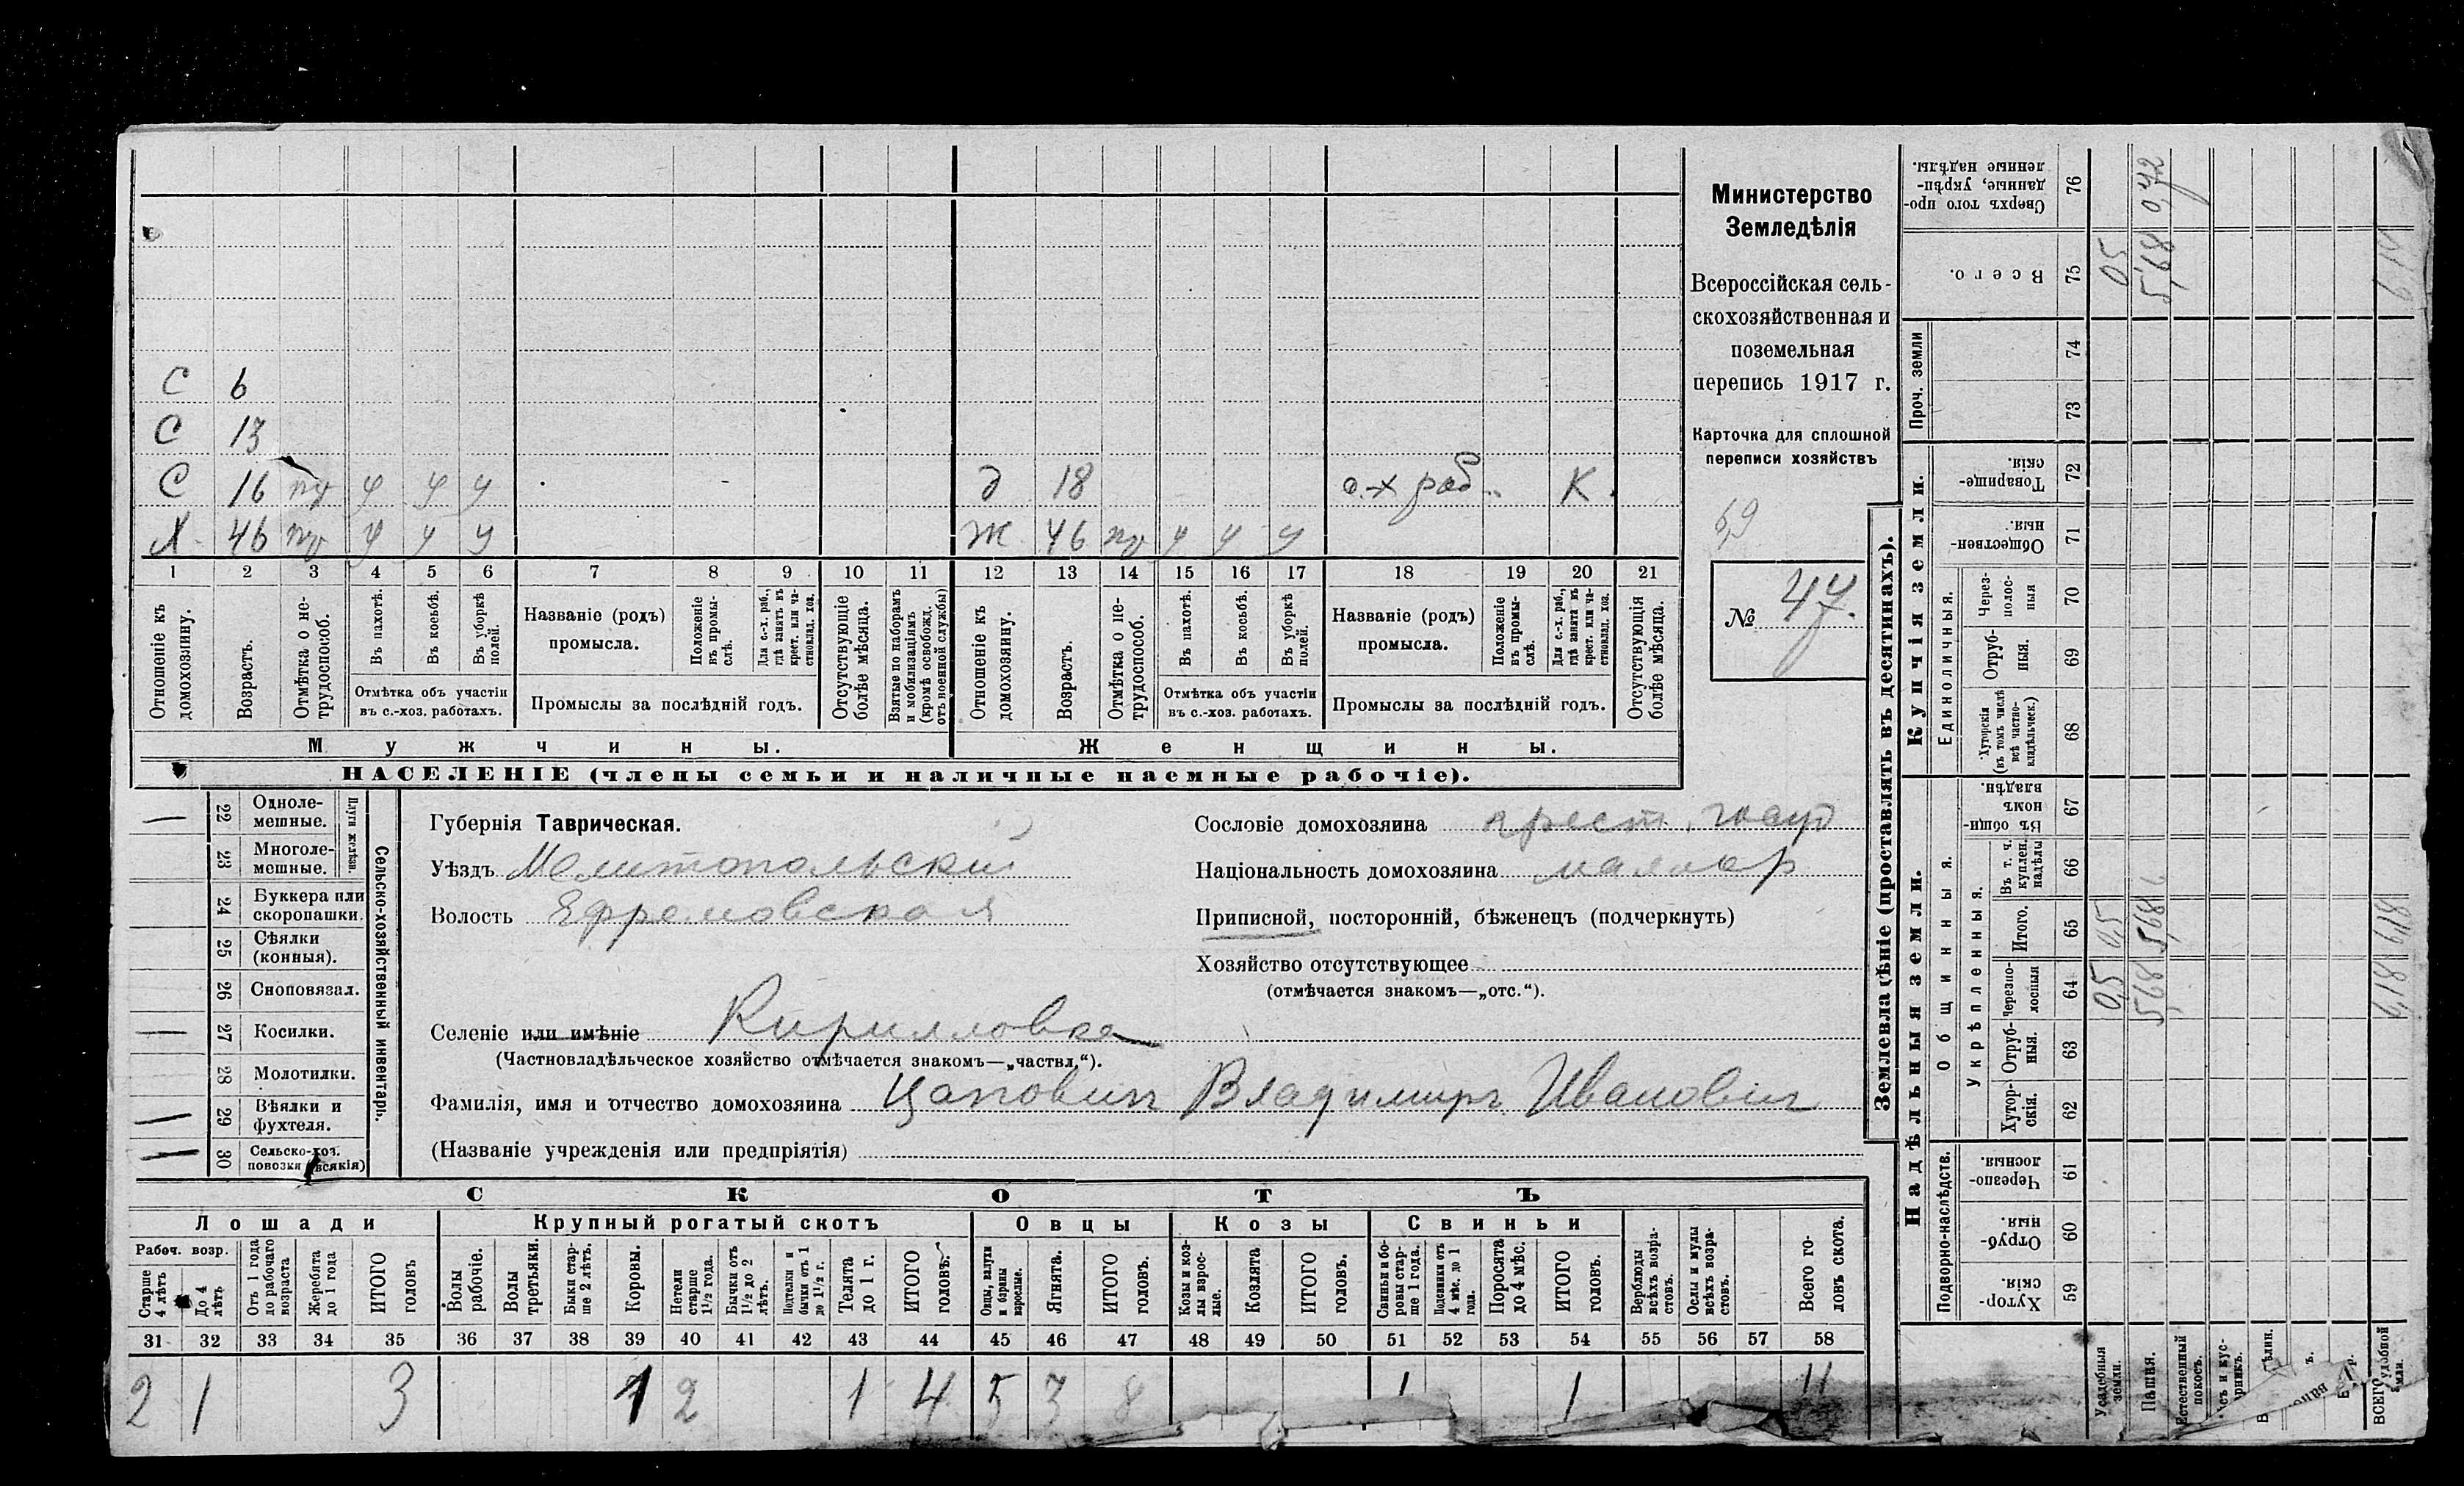 С 6
С 13
С 16 у у у д 18 с.-х раб. К.
Х. 46 у у у Ж 46 у у у
1 2 3 4 5 6 7 8 9 10 11 12 13 14 15 16 17 18 19 20 21
Отношеніе къ домохозяину.
Возрастъ.
Отмѣтка о не-трудоспособ.
Въ пахотѣ.
Въ косьбѣ.
Въ уборкѣ полей.
Отмѣтка объ участіи
въ с.-хоз. работахъ.
Названіе (родъ)
промысла.
Положеніе въ промы-слѣ.
Для с.-х. раб., гдѣ занятъ въ крест. или ча-стновлад. хоз.
Промыслы за послѣдній годъ.
Отсутствующіе болѣе мѣсяца.
Взятые по наборамъ и мобилизаціямъ (кромѣ освобожд. отъ военной службы)
Отношеніе къ домохозяину.
Возрастъ.
Отмѣтка о не-трудоспособ.
Въ пахотѣ.
Въ косьбѣ.
Въ уборкѣ полей.
Отмѣтка объ участіи
въ с.-хоз. работахъ.
Названіе (родъ)
промысла.
Положеніе въ промы-слѣ.
Для с.-х. раб., гдѣ занята въ крест. или ча-стновлад. хоз.
Промыслы за послѣдній годъ.
Отсутствующія болѣе мѣсяца.
Мужчины. Женщины.
НАСЕЛЕНІЕ (члены семьи и наличные наемные рабочіе).
Министерство
Земледѣлія
Всероссійская сель-
скохозяйственная и
поземельная
перепись 1917 г.
Карточка для сплошной
переписи хозяйствъ
№ 47.
Сельско-хозяйственный инвентарь.
Плуги желѣзн.
22 Одноле-
мешные.
23 Многоле-
мешные.
24 Буккера или
скоропашки.
25 Сѣялки
(конныя).
26 Сноповязал.
27 Косилки.
28 Молотилки.
29 Вѣялки и
фухтеля.
30 Сельско-хоз.
повозки (всякія)
Губернія Таврическая.
Уѣздъ Мелитопольскій
Волость Ефремовская
Селеніе или имѣніе Кирилловка
(Частновладѣльческое хозяйство отмѣчается знакомъ—„частвл.“).
Фамилія, имя и отчество домохозяина Цаповичъ Владимиръ Ивановичъ
(Названіе учрежденія или предпріятія)
Сословіе домохозяина крест.
Національность домохозяина малоор
Приписной, посторонній, бѣженецъ (подчеркнуть)
Хозяйство отсутствующее
(отмѣчается знакомъ—„отс.“).
СКОТЪ
Лошади Крупный рогатый скотъ Овцы Козы Свиньи
Рабоч. возр.
Старше 4 лѣтъ
До 4 лѣтъ
Отъ 1 года до рабочаго возраста
Жеребята до 1 года
ИТОГО головъ
Волы рабочіе.
Волы третьяки.
Быки стар-ше 2 лѣтъ.
Коровы.
Нетели старше 1½ года.
Бычки отъ 1½ до 2 лѣтъ.
Подтелки и бычки отъ 1 до 1½ г.
Телята до 1 г.
ИТОГО головъ.
Овцы, валухи и бараны взрослые.
Ягнята.
ИТОГО головъ.
Козы и коз-лы взрос-лые.
Козлята
ИТОГО головъ.
Свиньи и бо-ровы стар-ше 1 года.
Подсвинки отъ 4 мѣс. до 1 года.
Поросята до 4 мѣс.
ИТОГО головъ.
Верблюды всѣхъ возра-стовъ.
Ослы и мулы всѣхъ возра-стовъ.
Всего го-ловъ скота.
31 32 33 34 35 36 37 38 39 40 41 42 43 44 45 46 47 48 49 50 51 52 53 54 55 56 57 58
2 1 3 1 2 1 4 5 3 8 1 1
Землевладѣніе (проставлять въ десятинахъ).
Купчія земли.
Надѣльныя земли.
Сверхъ того про-данные, укрѣп-ленные надѣлы. 76 0,42
Всего. 75 0,5 5,68
Проч. земли 74 73
Товарище-скія. 72
Обществен-ныя. 71
Единоличныя.
Через-полос-ныя 70
Отруб-ныя. 69
Хуторскія (въ томъ числѣ всѣ частно-владѣльческ.) 68
Общинныя.
Въ общи-номъ владѣн. 67
Укрѣпленныя.
Въ т. ч. куплен. надѣлы 66
Итого. 65 0,5 5,68 6,18
Черезпо-лосныя 64 0,5 5,68 6,18
Отруб-ныя. 63
Хутор-скія. 62
Подворно-наслѣдств.
Черезпо-лосныя. 61
Отруб-ныя. 60
Хутор-скія. 59
Усадебныя земли.
Пашня.
Естественный покосъ.
ВСЕГО удобной земли.